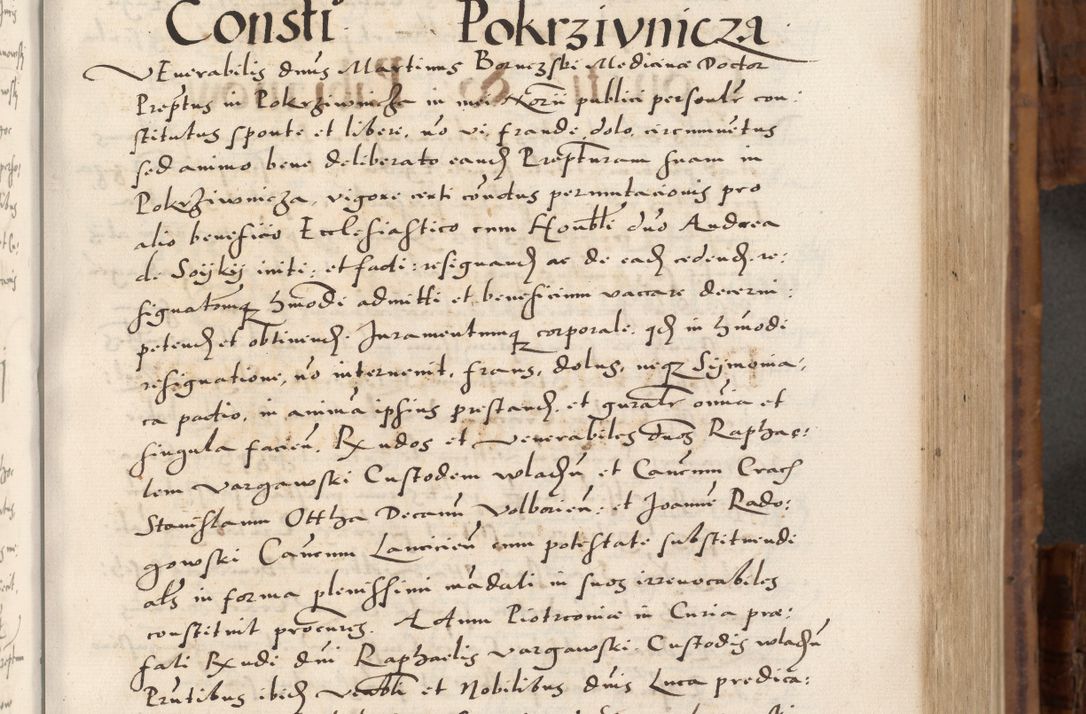 Consti⁰ Pokrziwnicza
Venerabilis dnus Martinus Bornczski Medicinæ Doctor
Prepttus in Pokrziwnicza in mei Notrii publici personalr con:
stitutus sponte et libere, nō vi, fraude, dolo, circumuentus
sed animo bene deliberato eandē Prepturam suam in
Pokrziwnicza, vigore certi cōtractus permutacionis pro
alio beneficio Ecclesiastico cum Honbli dno Andrea
de Soyky initi: et facti: resignandē ac de eadē cedendē. re:
signationemq hmōdi admitti et beneficium vaccare decerni:
petendē et obtinendē. Juramentumq corporale, qdē in hmōdi
resignatione, nō interuenit, fraus, dolus, neq Symonia,
ca pactio, in animā ipsius prestandē, et gnralr omnia et
singula facien. Rndos et Venerabiles dnos Raphae:
lem Vargawski Custodem wladū et Cancum Crac
Stanislaum Ottha Decanū Volborien: et Joannē Rado:
gowski Cancum Lancicien cum potestate substituendi
als in forma plenissimi mādati in suos irreuocabiles
constituit procures. Actum Piotrconiæ in Curia præ:
fati Rndi dni Raphaelis Vargawski Custodis wladū
Prntibus ibidē Venbli et Nobilibus dnis Luca predica: